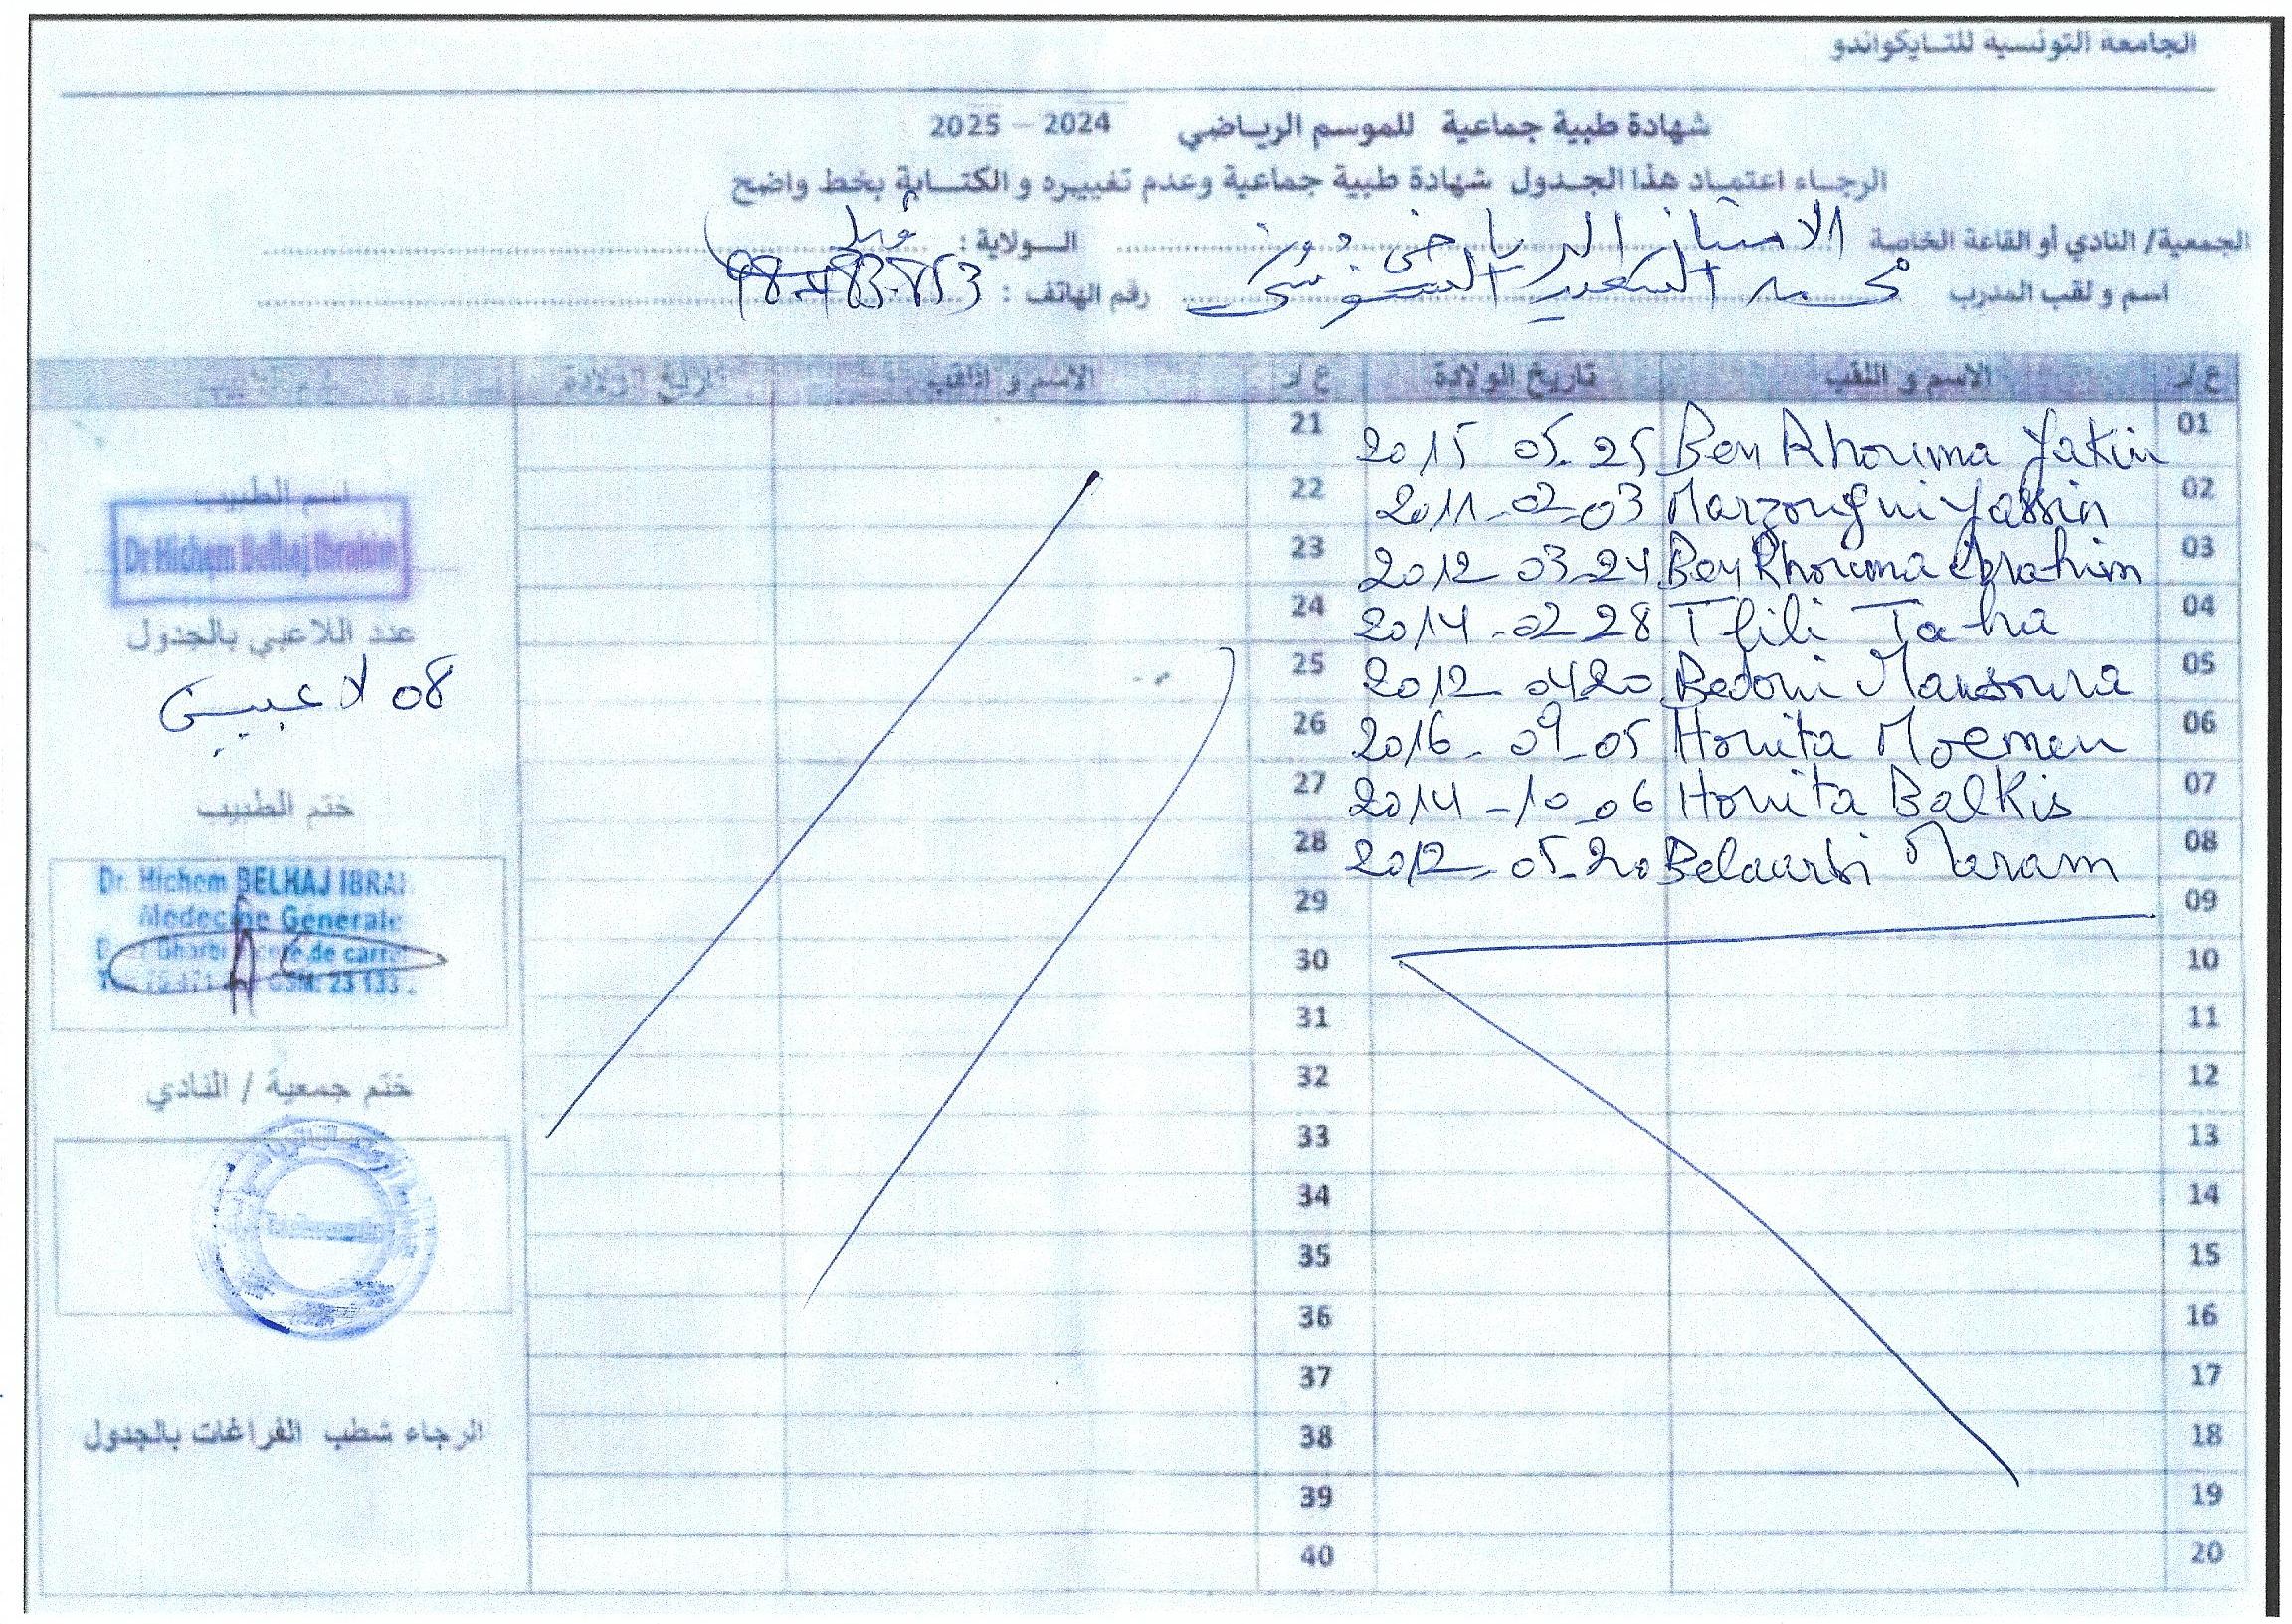 الجامعة التونسية للتايكواندو
شهادة طبية جماعية للموسم الرياضي 2024 – 2025
الرجاء اعتماد هذا الجدول شهادة طبية جماعية وعدم تغييره والكتابة بخط واضح
الجمعية/ النادي أو القاعة الخاصة الامتياز الرياضي دوز الولاية : قبلي
اسم و لقب المدرب محمد السعيد السنوسي رقم الهاتف :
ع/ر الاسم و اللقب تاريخ الولادة ع/ر الاسم و اللقب تاريخ الولادة
01 Ben Rhouma Yakin 2015 05-25 21
02 Marzougui Yassin 2011-02-03 22
03 Ben Rhouma ibrahim 2012 03-24 23
04 Tlili Taha 2014-02 28 24
05 Bedoui Mansoura 2012 04 20 25
06 Houita Moemen 2016-09-05 26
07 Houita Balkis 2014-10-06 27
08 Belaarbi Maram 2012-05-20 28
09 29
10 30
11 31
12 32
13 33
14 34
15 35
16 36
17 37
18 38
19 39
20 40
اسم الطبيب
Dr Hichem Belhaj Ibrahim
عدد اللاعبي بالجدول
08 لاعبين
ختم الطبيب
Dr. Hichem BELHAJ IBRA
Médecine Générale
GSM: 23 133
ختم جمعية / النادي
الرجاء شطب الفراغات بالجدول